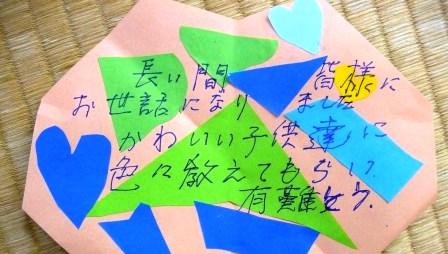 長い間 皆様に
お世話になり ました
かわいい子供達に
色々教えてもらい
有難とウ.